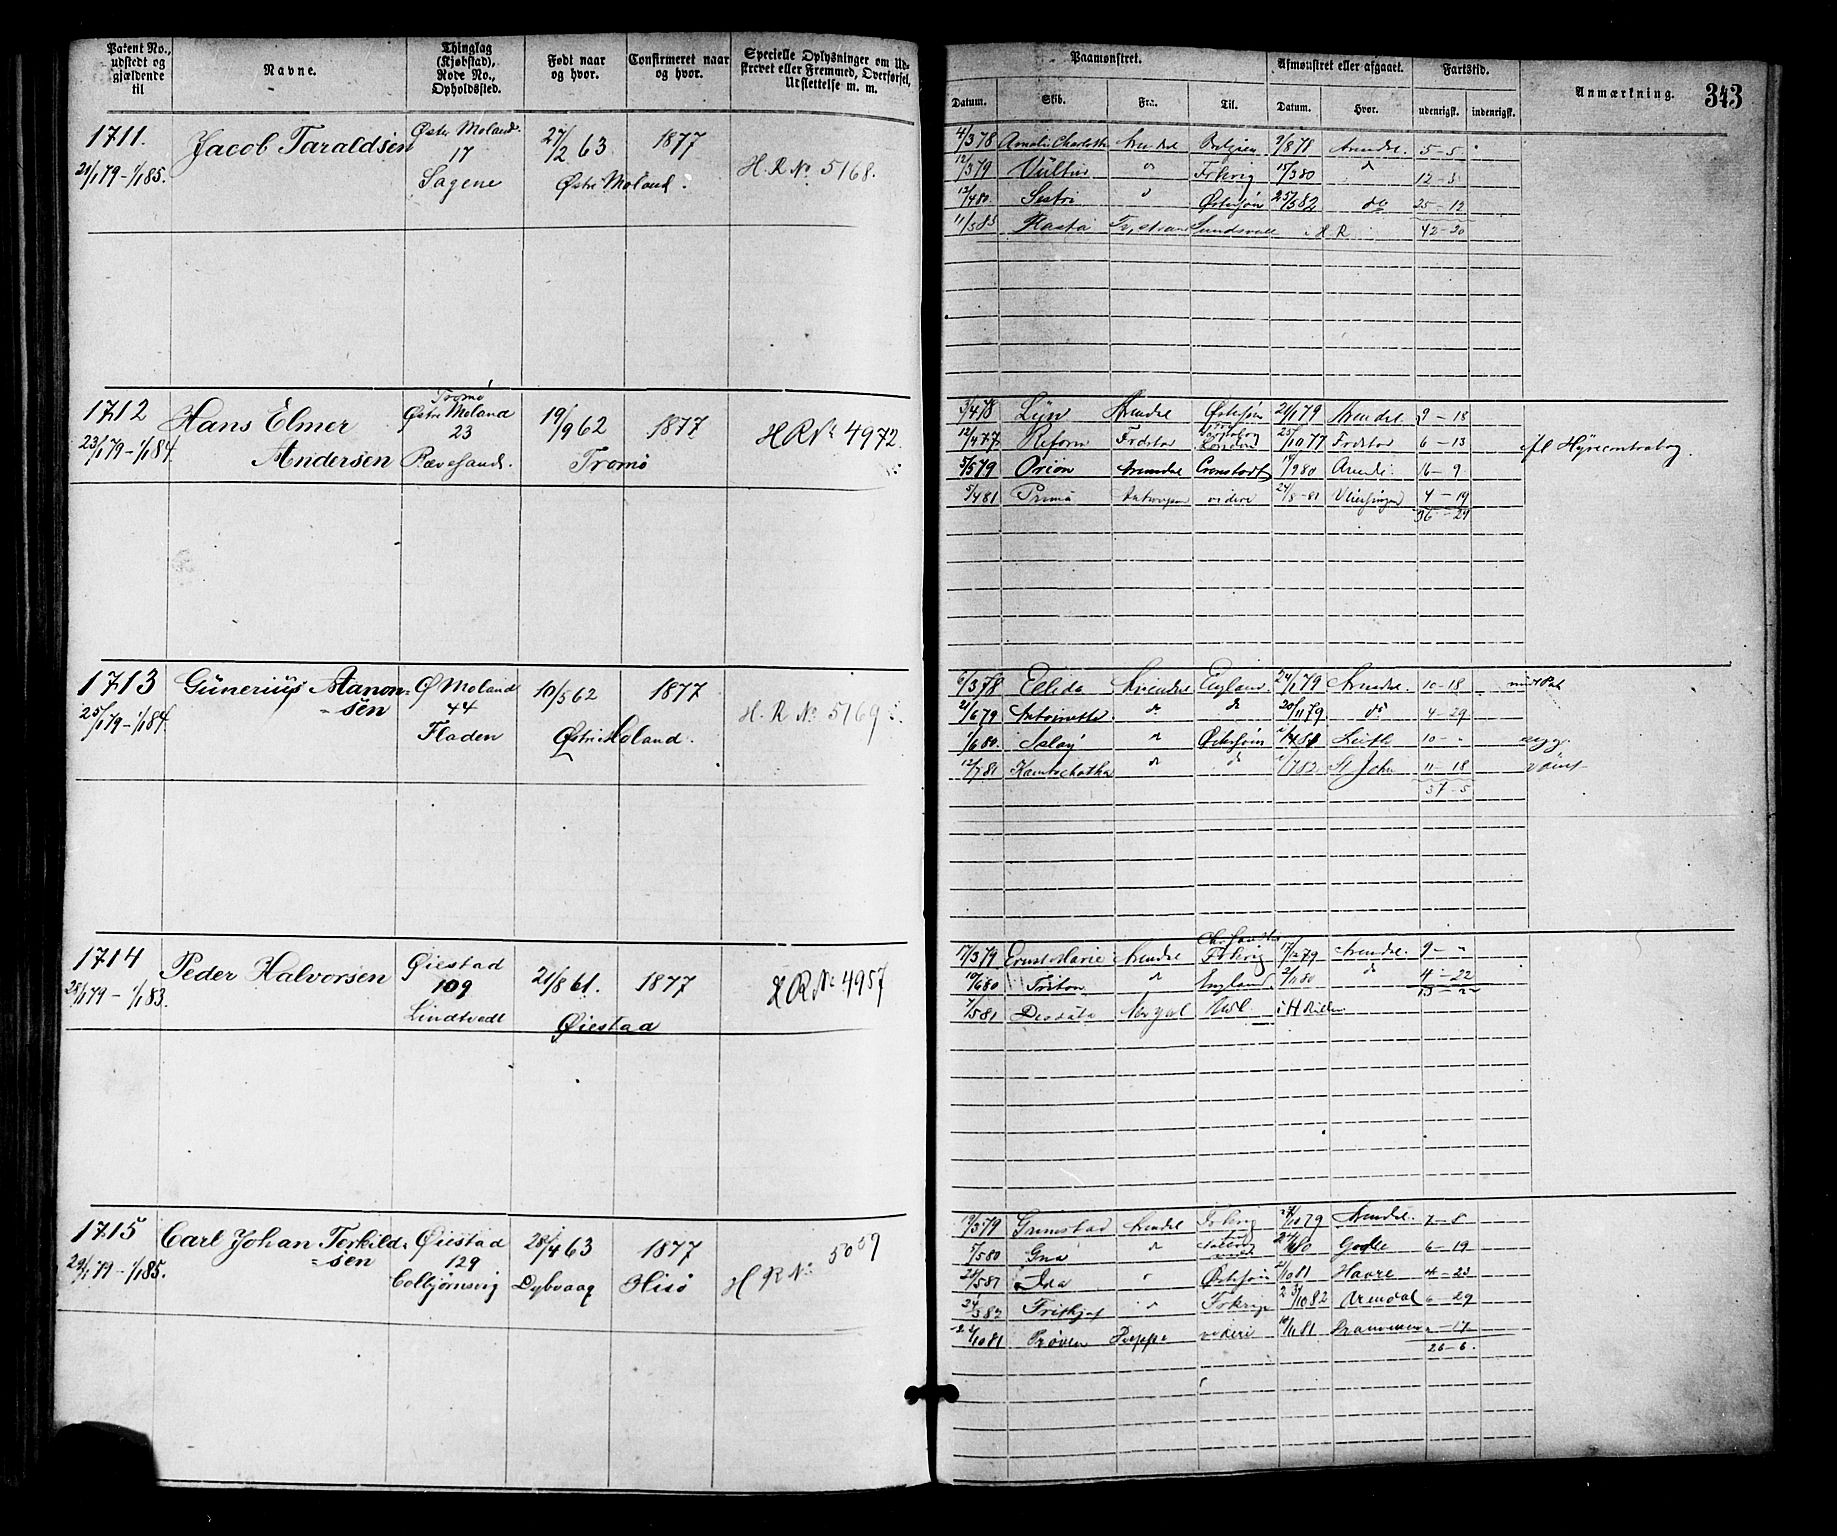 Patent No., udstedt og gjældende til
Navne.
Thinglag (Kjøbstad), Rode No., Opholdssted.
Født naar og hvor.
Confirmeret naar og hvor.
Specielle Oplysninger om Udskrevet eller Fremmed, Overførsel, Udslettelse m. m.
Paamønstret.
Afmønstret eller afgaaet.
Fartstid.
Anmærkning.
343
Datum.
Skib.
Fra.
Til.
Datum.
Hvor.
udenrigsk.
indenrigsk.
1711.
Jacob Taraldsen
Østre Moland.
17
Sagene
21/1 79 - 1/1 85.
27/2 63
1877
Østre Moland.
H.R No 5168.
4/3 78 Arendal Belgien 9/8 78 Arendal. 5-5
12/3 79 15/3 80 12-3
12/4 80 Østersjøen 25/3 82 do 25-12
11/3 85 Sundsvall H R 42-20
1712
Hans Elmer
Andersen
Tromø
Østre Moland
23
Rævesand.
23/1 79 - 1/1 84.
19/9 62
1877
Tromø
H R No 4972.
3/4 78 Lyn Arendal Østersjøen 21/1 79 Arendal. 9-18
12/4 77 Reform Fredstad London 25/10 77 Fredstad 6-13 Hyrecontrabog.
5/5 79 Orion Arendal Cronstadt 14/9 80 Arendal 16-9
5/4 81 Prima Antwerpen videre 24/8-81 Vliessingen 4-19
36-29
1713
Gunerius Aanon=
=sen
Ø Moland
44
Fladen
25/1 79 - 1/1 84.
10/5 62
1877
Østre Moland.
H. R No 5169
6/3 78 Ellida Arendal England 24/1 79 Arendal. 10-18
21/6 79 Antoinette do do 20/11 79 do 4-29
1/6 80. Østersjøen Leith 10-"
12/7 81 Kamtschatka do do 1/7 82. St John 11-18
37-5
1714
Peder Halvorsen
Øiestad
109
Lindtvedt
28/1 79 - 1/1 83.
21/8 61.
1877
Øiestad
H R No 4957
17/3 79 Ernst Marie Arendal 17/12 79 Arendal. 9-"
10/6 80 Triton do England 2/11 80 do 4-22
13-22
7/5 81 Deodata
1715
Carl Johan Terkild=
=sen
Øiestad
129
Colbjørnsvig
29/1 79 - 1/1 85.
28/4 63
1877
Dybvaag
Hisø
H R No 5009
19/3 79 Grimstad Arendal 27/10 79 Arendal. 7-8
5/5 80 Gna do 6-19
21/5 81 Ida Østersjøen 21/10 81 Havre 4-23
24/3 82 Frithjof 23/10 82 Arendal 6-29
22/10 81 Prøven Dieppe videre 10/11 81 "-17
26-6.